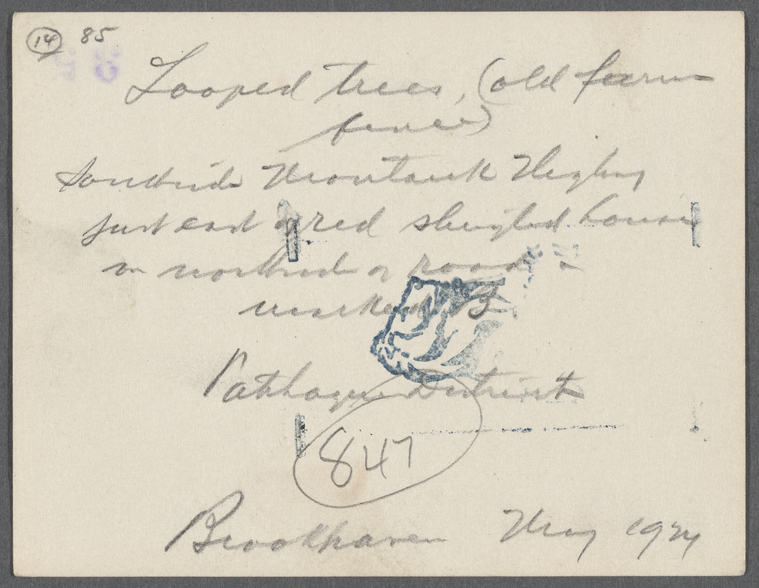 14 85
Looped trees, (old farm
fence)
Southside Montauk Highwy
just east of red shingled house
on northside of road
marked
Patchogue District
847
Brookhaven May 1924